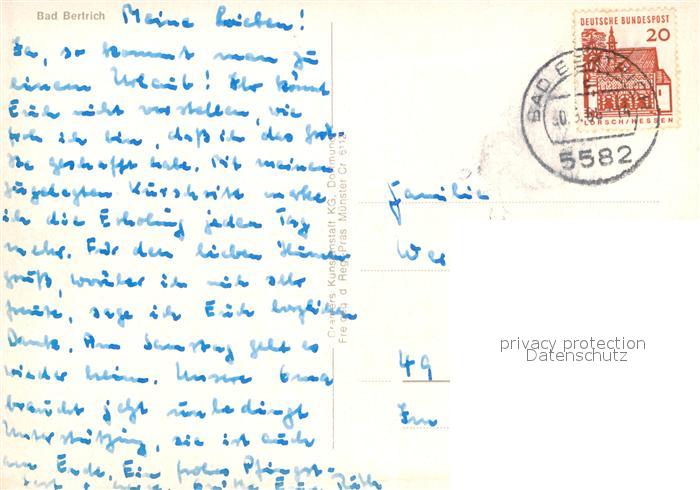 Bad Bertrich
Meine Lieben!
Ja, so kommt man zu
einem Urlaub! Ihr könnt
Euch nicht vorstellen, wie
froh ich bin, daß ich das Gröb-
ste geschafft habe. Mit meinem
zugelegten Kurschritt merke
ich die Erholung jeden Tag
mehr. Für den lieben
gruß, worüber ich mich sehr
freute, sage ich Euch herzlichen
Dank. Am Samstag geht es
wieder heim. Unsere Oma
braucht jetzt unbedingt
Unterstützung, sie ist auch
am Ende. Ein frohes Pfingst-
Eure Ruth
Cramers Kunstanstalt KG, Dortmund
DEUTSCHE BUNDESPOST
20
LORSCH/HESSEN
BAD BERTRICH
5582
Familie
49
privacy protection
Datenschutz